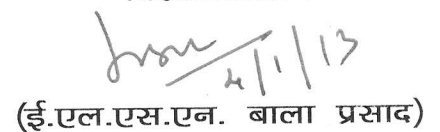 4/1/13
(ई.एल.एस.एन. बाला प्रसाद)